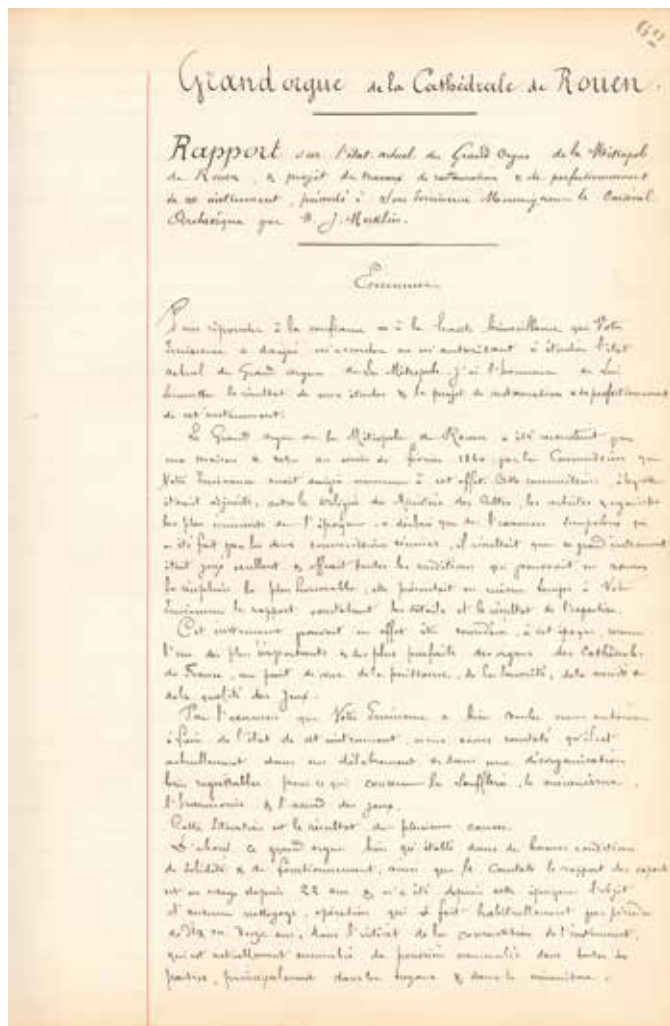 60
Grand orgue de la Cathédrale de Rouen.
Rapport sur l'état actuel du Grand Orgue de la Métropole
de Rouen, & projet de travaux de restauration & de perfectionnement
de cet instrument, présenté à Son Eminence Monseigneur le Cardinal
Archevêque par J. Merklin.
Eminence
Pour répondre à la confiance & à la haute bienveillance que Votre
Eminence a daigné m'accorder en m'autorisant à étudier l'état
actuel du Grand orgue de la Métropole, j'ai l'honneur de Lui
soumettre le résultat de mes études & le projet de restauration & de perfectionnement
de cet instrument.
Le Grand orgue de la Métropole de Rouen a été reconstruit par
ma maison & reçu au mois de février 1860 par la Commission que
Votre Eminence avait daigné nommer à cet effet. Cette commission, à laquelle
étaient adjoints, outre le délégué du Ministère des Cultes, les artistes & organistes
les plus éminents de l'époque, a déclaré que de l'examen
a été fait par les deux commissions réunies, il résultait que ce grand instrument
était excellent & offrait toutes les conditions qui pouvaient en assurer
la réception la plus honorable; elle présentait en même temps à Votre
Eminence le rapport constatant les détails et le résultat de l'expertise.
Cet instrument pouvait en effet être considéré, à cet époque, comme
l'un des plus importants & des plus parfaits des orgues des Cathédrales
de France, au point de vue de la puissance, de la sonorité, de la variété &
de la qualité des jeux.
Par l'examen que Votre Eminence a bien voulu nous autoriser
à faire de l'état de cet instrument, nous avons constaté qu'il est
actuellement dans un délabrement & dans une désorganisation
bien regrettables pour ce qui concerne la soufflerie, le mécanisme,
l'harmonie & l'accord des jeux.
Cette situation est le résultat de plusieurs causes.
D'abord, ce grand orgue bien qu'établi dans de bonnes conditions
de solidité & de fonctionnement, ainsi que le constate le rapport des experts
est en usage depuis 22 ans & n'a été depuis cette époque l'objet
d'aucun nettoyage, opération qui se fait habituellement par période
de dix ou douze ans, dans l'intérêt de la conservation de l'instrument,
qui est actuellement de poussière accumulée dans toutes les
parties, principalement dans les tuyaux & dans le mécanisme.